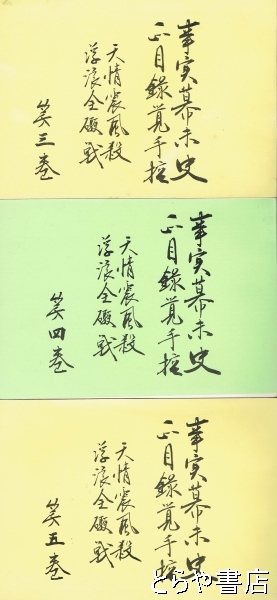 事実幕末史
正目録覚手控
天情震風殺
浮浪全殲戦
第三巻
事実幕末史
正目録覚手控
天情震風殺
浮浪全殲戦
第四巻
事実幕末史
正目録覚手控
天情震風殺
浮浪全殲戦
第五巻
とらや書店